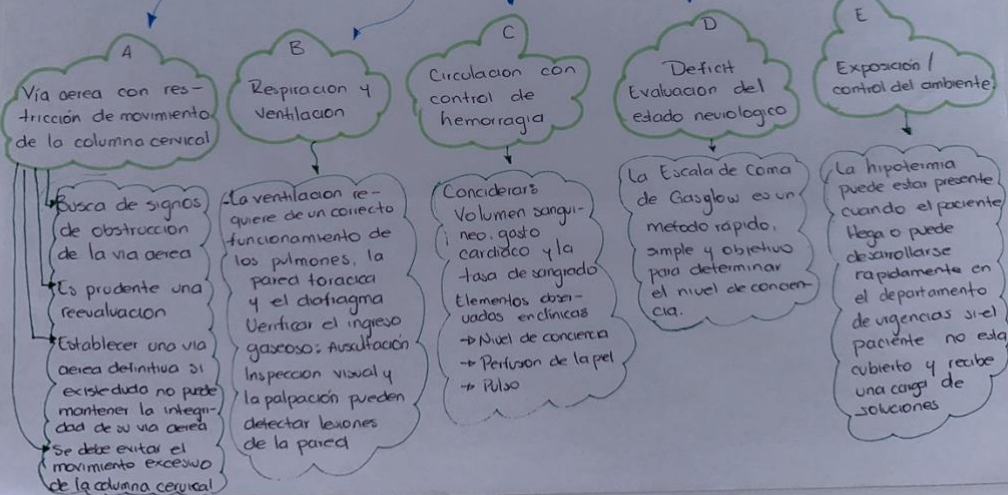 A
Vía aerea con res-
tricción de movimiento
de la columna cervical
Busca de signos
de obstruccion
de la via aerea
Es prudente una
reevaluacion
Establecer una via
aerea definitiva si
existe duda no puede
mantener la integri-
dad de su via aerea
Se debe evitar el
movimiento excesivo
de la columna cervical
B
Respiracion y
ventilacion
La ventilacion re-
quiere de un correcto
funcionamiento de
los pulmones, la
pared toracica
y el diafragma
Verificar el ingreso
gaseoso: Auscultación
Inspeccion visual y
la palpación pueden
detectar lesiones
de la pared
C
Circulacion con
control de
hemorragia
Conciderar:
Volumen sangui-
neo, gasto
cardiaco y la
tasa de sangrado
Elementos obser-
vados en clinicas
→ Nivel de conciecia
→ Perfusion de la pel
→ Pulso
D
Deficit
Evaluacion del
estado neurologico
La Escala de Coma
de Gasglow es un
metodo rapido,
simple y objetivo
para determinar
el nivel de concien-
cia.
E
Exposicion /
control del ambiente
La hipotermia
puede estar presente
cuando el paciente
llega o puede
desarrollarse
rapidamente en
el departamento
de urgencias si el
paciente no esta
cubierto y recibe
una carga de
soluciones